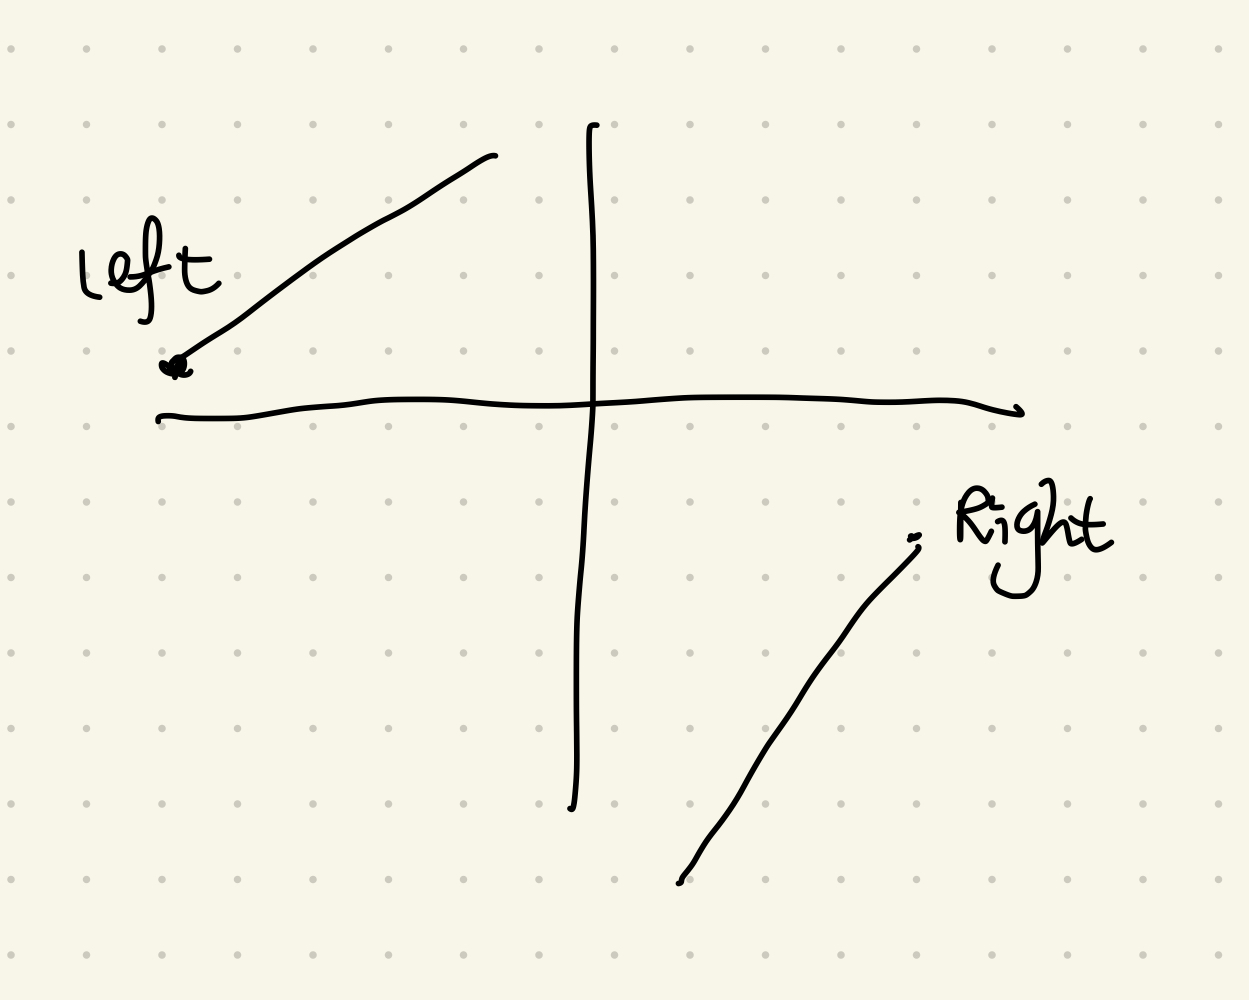 left
Right